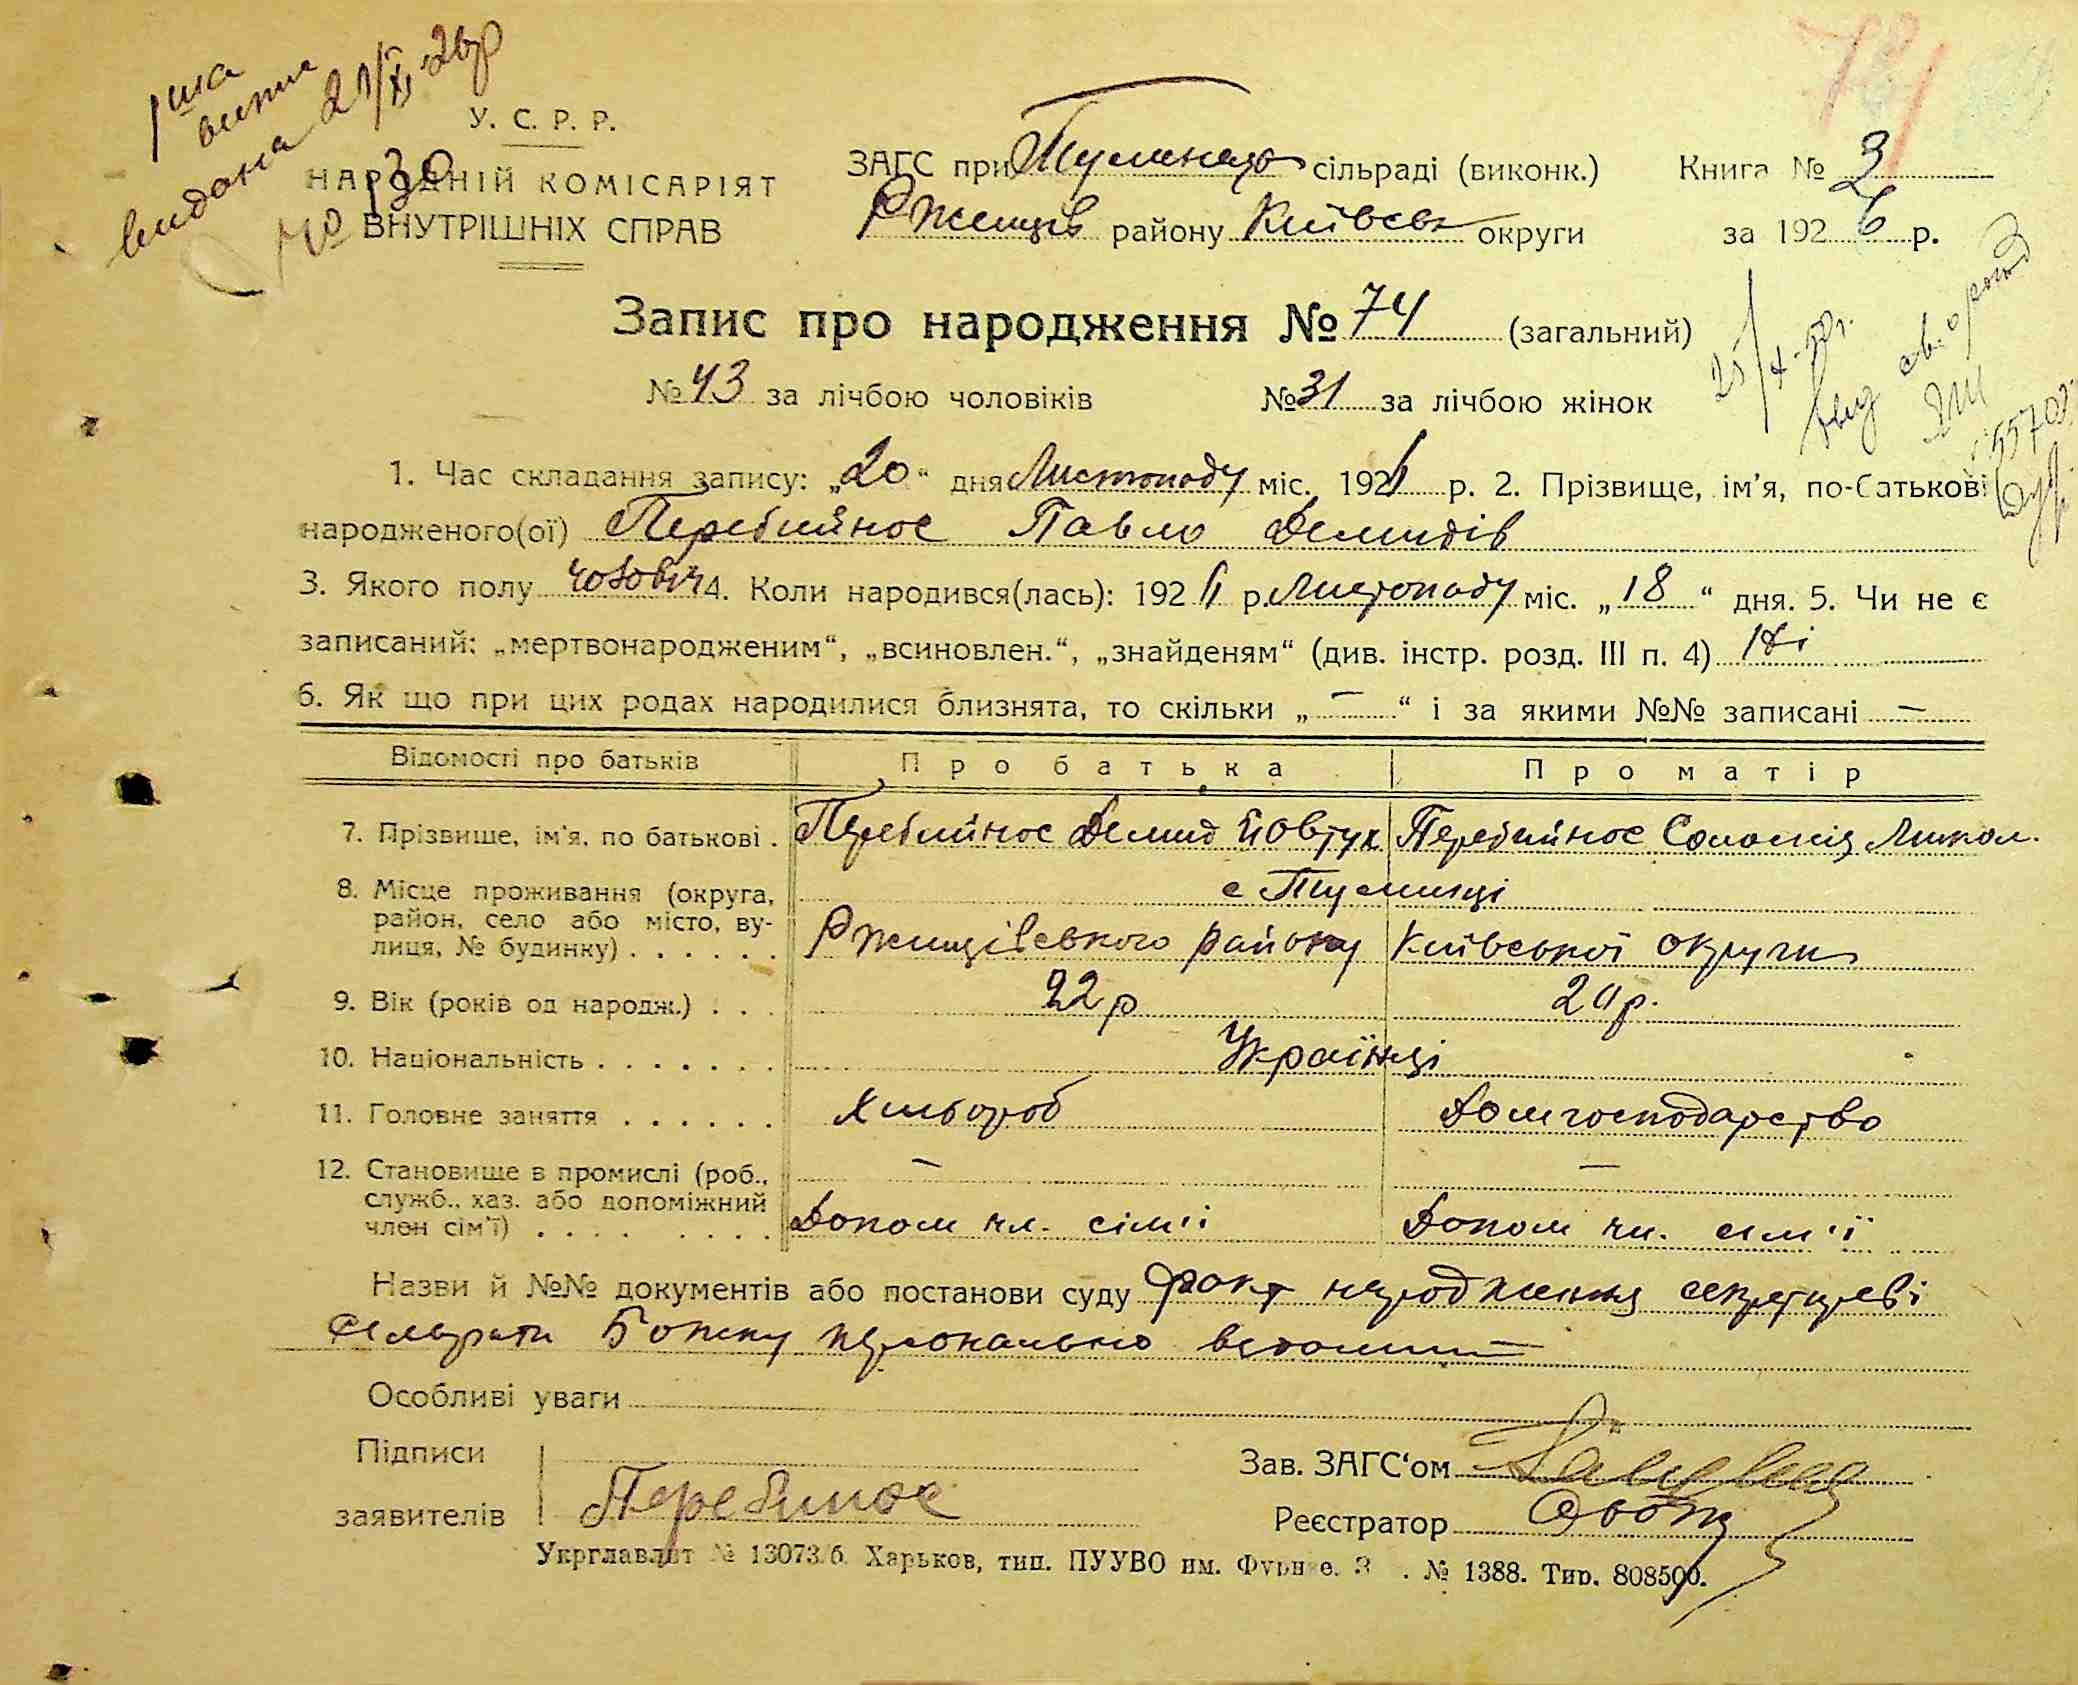 1ша
випис
видана 21/XI 26р
№ 130
У. С. Р. Р.
НАРОДНІЙ КОМІСАРІЯТ
ВНУТРІШНІХ СПРАВ
ЗАГС при сільраді (виконк.) Книга № 3
Ржищів району Київськ округи за 1926 р.
Запис про народження № 74 (загальний)
№ 43 за лічбою чоловіків № 31 за лічбою жінок
25/X-50г.
1. Час складання запису: „20“ дня Листопаду міс. 1926 р. 2. Прізвище, ім'я, по-батькові
народженого(ої) Перебийнос Павло Демидів
3. Якого полу чоловіч 4. Коли народився(лась): 1926 р. Листопаду міс. „18“ дня. 5. Чи не є
записаний: „мертвонародженим“, „всиновлен.“, „знайденям“ (див. інстр. розд. III п. 4) Ні
6. Як що при цих родах народилися близнята, то скільки „—“ і за якими №№ записані —
Відомості про батьків Про батька Про матір
7. Прізвише, ім'я, по батькові . Перебийнос Демид Йовтух Перебийнос Соломія Микол.
8. Місце проживання (округа, с Тулинці
район, село або місто, ву-
лиця, № будинку) . . . . . . Ржищівського району Київської округи
9. Вік (років од народж.) . . . 22 р 20 р.
10. Національність . . . . . . . Українці
11. Головне заняття . . . . . . Хлібороб Домгосподарство
12. Становище в промислі (роб., — —
служб., хаз. або допоміжний
член сім'ї) . . . . . . . . Допом чл. сім'ї Допом чл. сім'ї
Назви й №№ документів або постанови суду факт народження секретареві
сельради персонально
Особливі уваги
Підписи
заявителів Перебинос
Зав. ЗАГС'ом
Реєстратор
Укрглавліт № 13073/б. Харьков, тип. ПУУВО им. Фрунзе. З . № 1388. Тир. 808500.